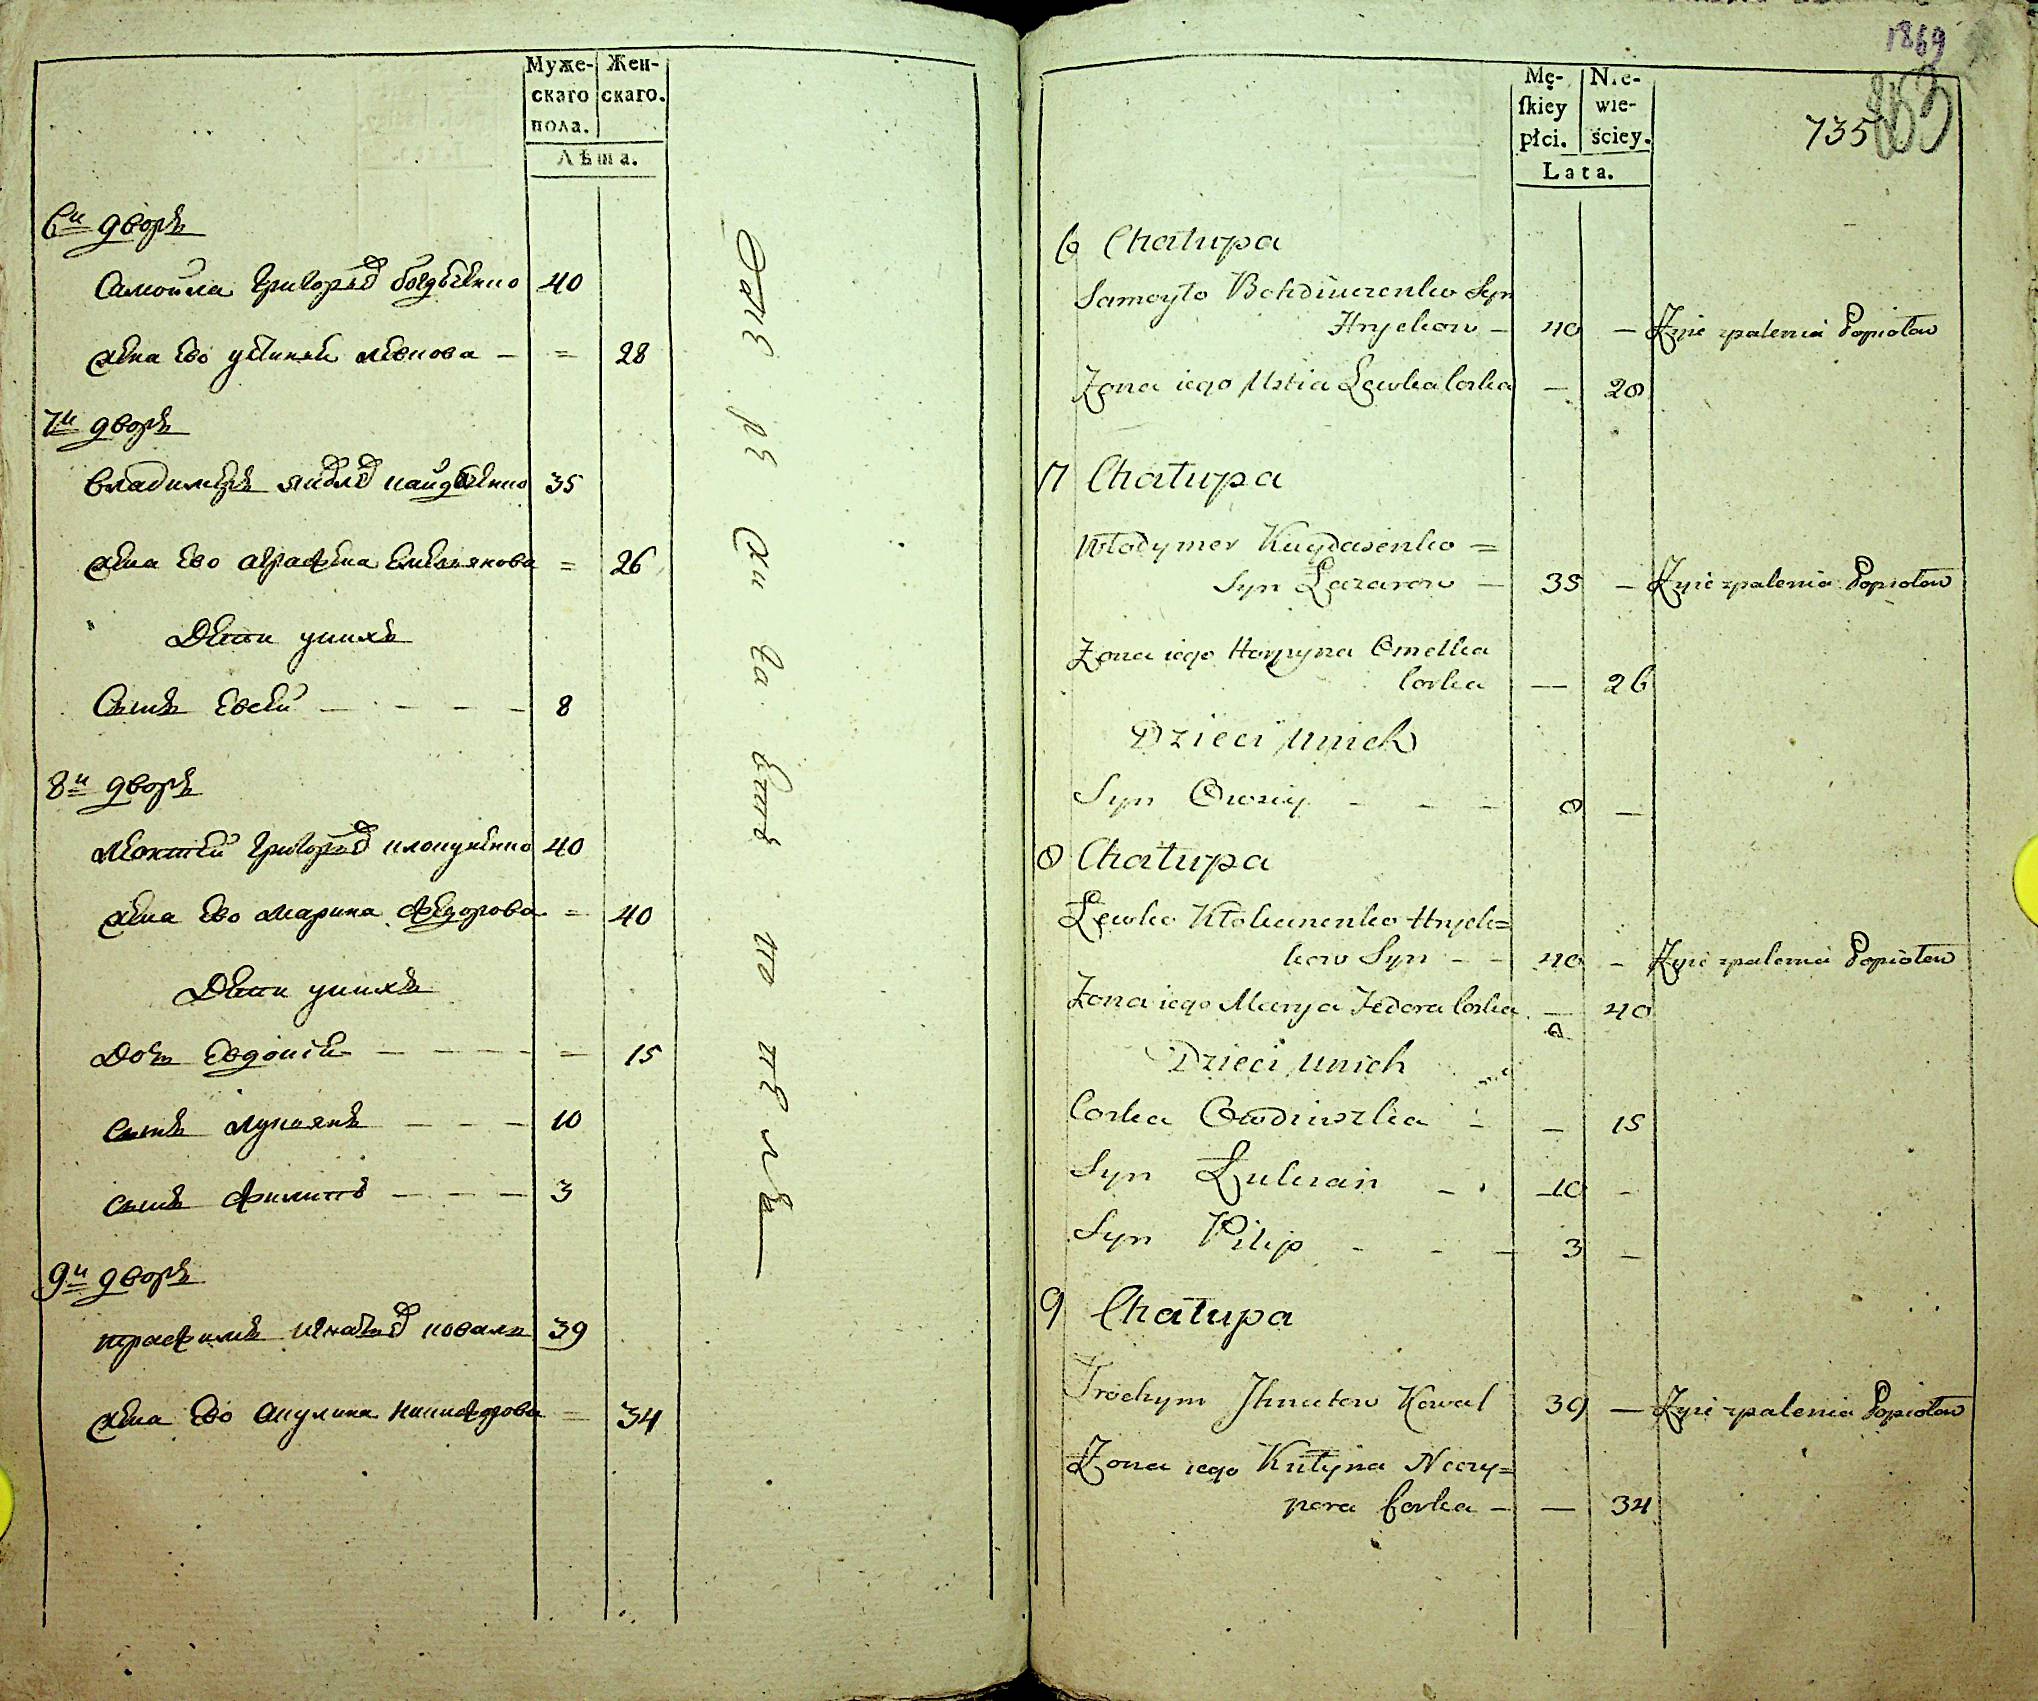 Муже-
скаго
пола.
Жен-
скаго.
Лѣта.
6й дворъ
Самойла Григорьев 40
жена ево Устинья 28
7й дворъ
Владимеръ 35
жена ево Аграфена Емельянова = 26
Дети у них
Сынъ Евсей — — — — 8
8й дворъ
Леонтей Григорьев 40
жена ево Марина Федорова = 40
Дети у них
Дочь — — — — = 15
сынъ Лукьянъ — — — 10
сынъ Филипъ — — — 3
9й дворъ
Трафимъ Игнатьев коваль 39
жена ево Акулина Никифорова = 34
1269
Mę-
ſkiey
płci.
Nie-
wie-
ściey.
Lata.
735
6 Chałupa
Samoyło Syn
Hryckow — 40 — Żyie z palenia Popiołow
Żona iego Ustia Lewka Corka — 28
7 Chałupa
Włodymer Kaydasenko =
Syn Łazarow — 35 — Żyie z palenia Popiołow
Żona iego Horpyna Omelka
Corka — 26
Dzieci u nich
Syn Owsiy — — — 8 —
8 Chałupa
Lewko Hryc=
kow Syn — — 40 — Żyie z palenia Popiołow
Żona iego Marya Fedora Corka — 40
Dzieci u nich
Corka — — 15
Syn Łukian — 10 —
Syn Pilip — — — 3 —
9 Chałupa
Trochym Ihnatow Kowal 39 — Żyie z palenia Popiołow
Żona iego Kulyna Neczy=
pora Corka — — 34